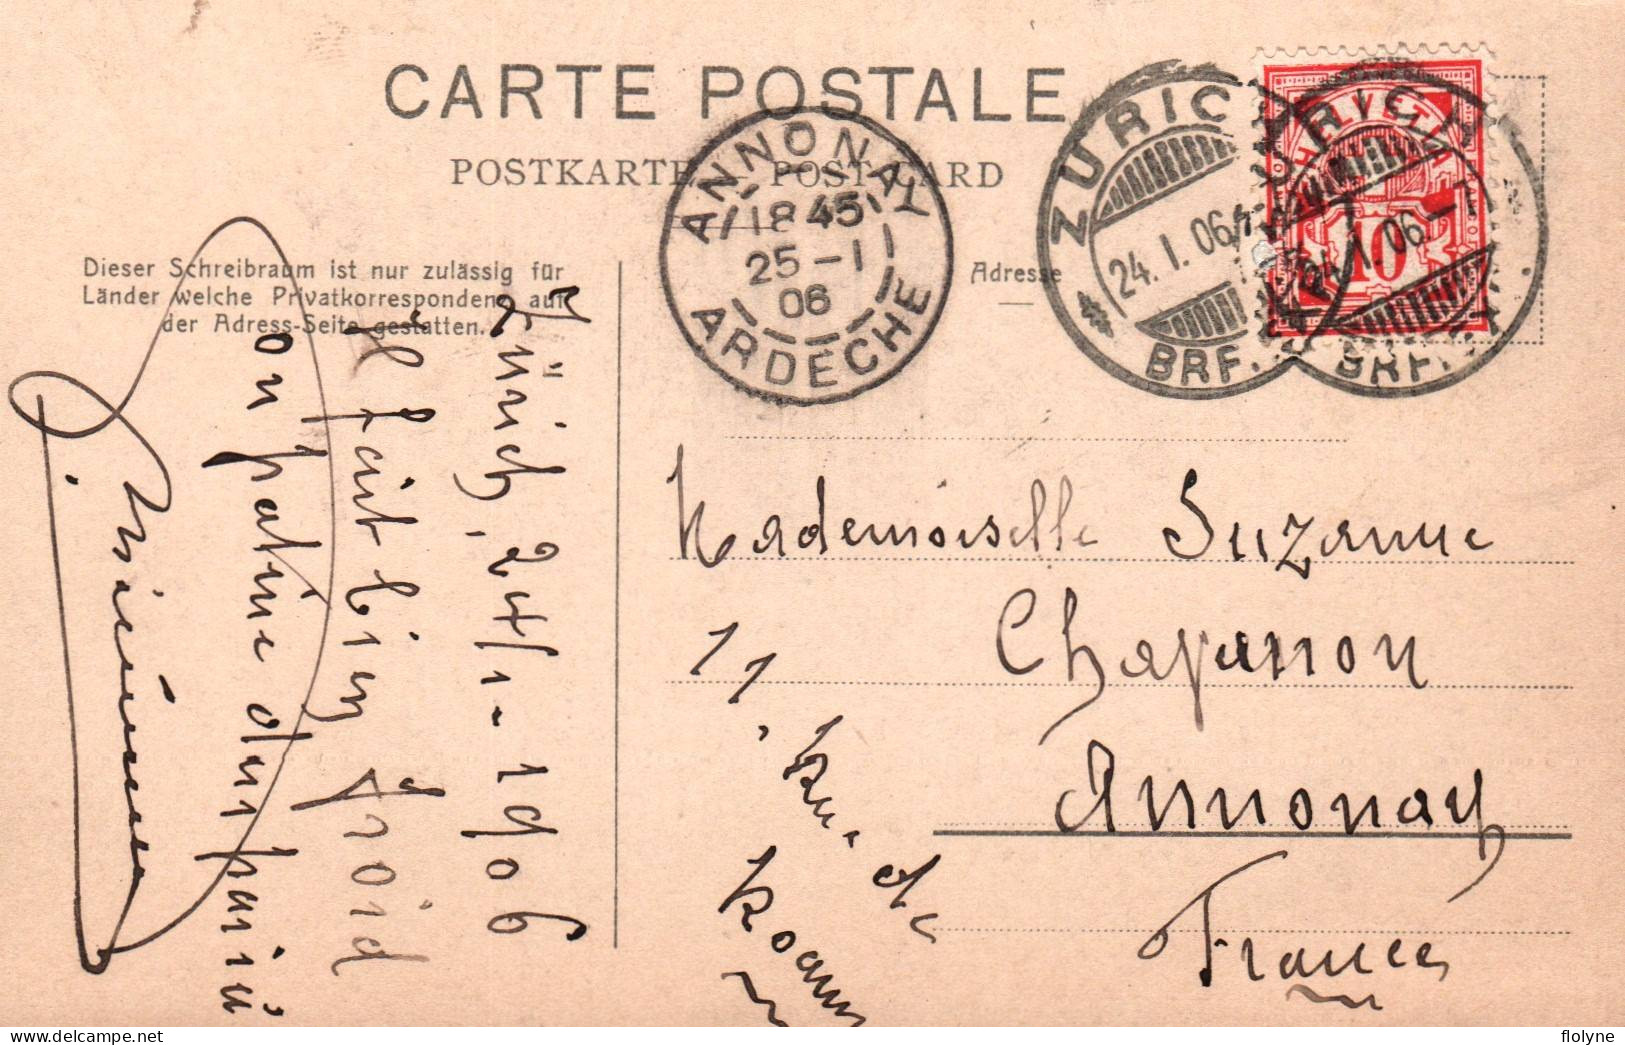 CARTE POSTALE
POSTKARTE - POST CARD
Dieser Schreibraum ist nur zulässig für
Länder welche Privatkorrespondenz auf
der Adress-Seite gestatten.
Adresse
ANNONAY
18 45
25 - 1
06
ARDECHE
ZÜRICH
24.I.06
BRF.
ZÜRICH
24.I.06.-11
BRF.
HELVETIA
10
Zürich, 24/1-1906
Il fait bien froid
on patine dur par ici
Mademoiselle Suzanne
Chapanon
11. Rue de
Annonay
France
flolyne